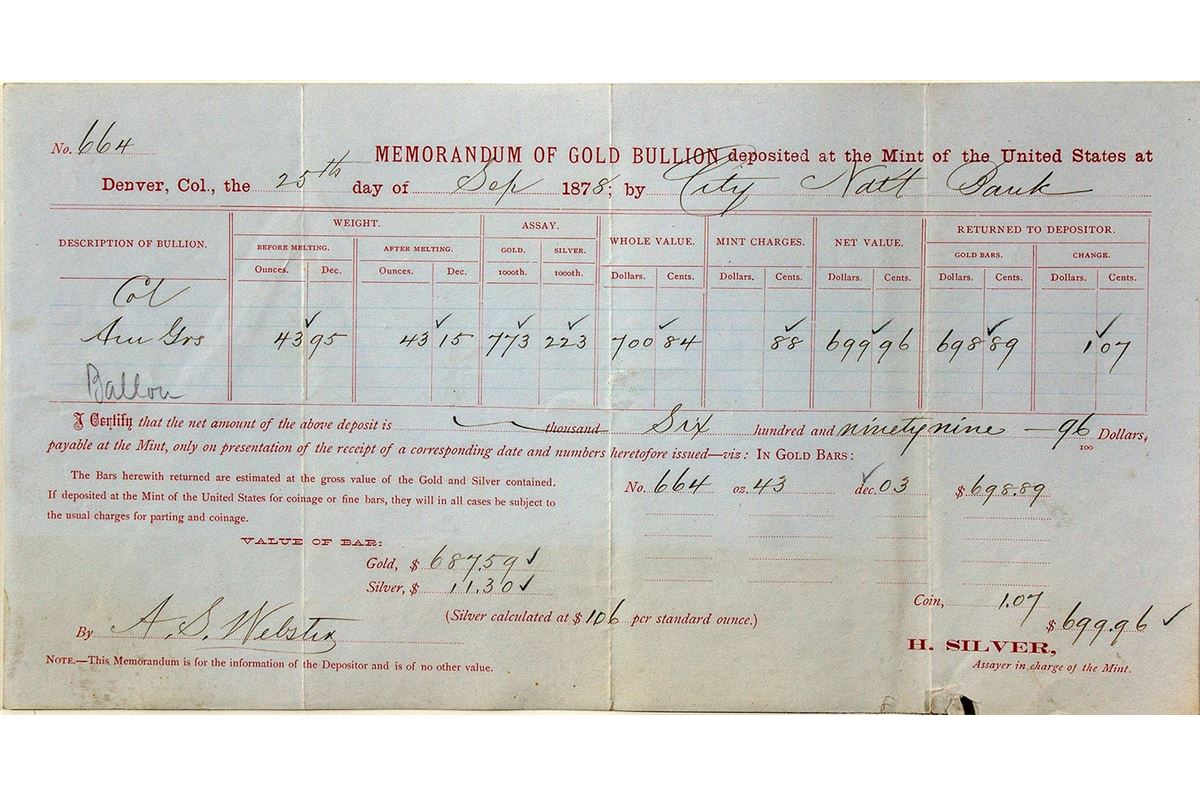 No. 664
MEMORANDUM OF GOLD BULLION deposited at the Mint of the United States at
Denver, Col., the 25th day of Sep 1878; by City Natl Bank
DESCRIPTION OF BULLION. WEIGHT. ASSAY. WHOLE VALUE. MINT CHARGES. NET VALUE. RETURNED TO DEPOSITOR.
BEFORE MELTING. AFTER MELTING. GOLD. SILVER. GOLD BARS. CHANGE.
Ounces. Dec. Ounces. Dec. 1000th. 1000th. Dollars. Cents. Dollars. Cents. Dollars. Cents. Dollars. Cents. Dollars. Cents.
Col
Am Grs 43 95 43 15 773 223 700 84 88 699 96 698 89 1 07
Ballou
I Certify that the net amount of the above deposit is thousand Six hundred and ninety nine — 96/100 Dollars,
payable at the Mint, only on presentation of the receipt of a corresponding date and numbers heretofore issued—viz: IN GOLD BARS:
The Bars herewith returned are estimated at the gross value of the Gold and Silver contained.
If deposited at the Mint of the United States for coinage or fine bars, they will in all cases be subject to
the usual charges for parting and coinage.
No. 664 oz. 43 dec. 03 $ 698.89
VALUE OF BAR:
Gold, $ 687.59
Silver, $ 11.30
(Silver calculated at $ 106 per standard ounce.)
Coin, 1.07
$ 699.96
By A. S. Webster
H. SILVER,
Assayer in charge of the Mint.
NOTE.—This Memorandum is for the information of the Depositor and is of no other value.